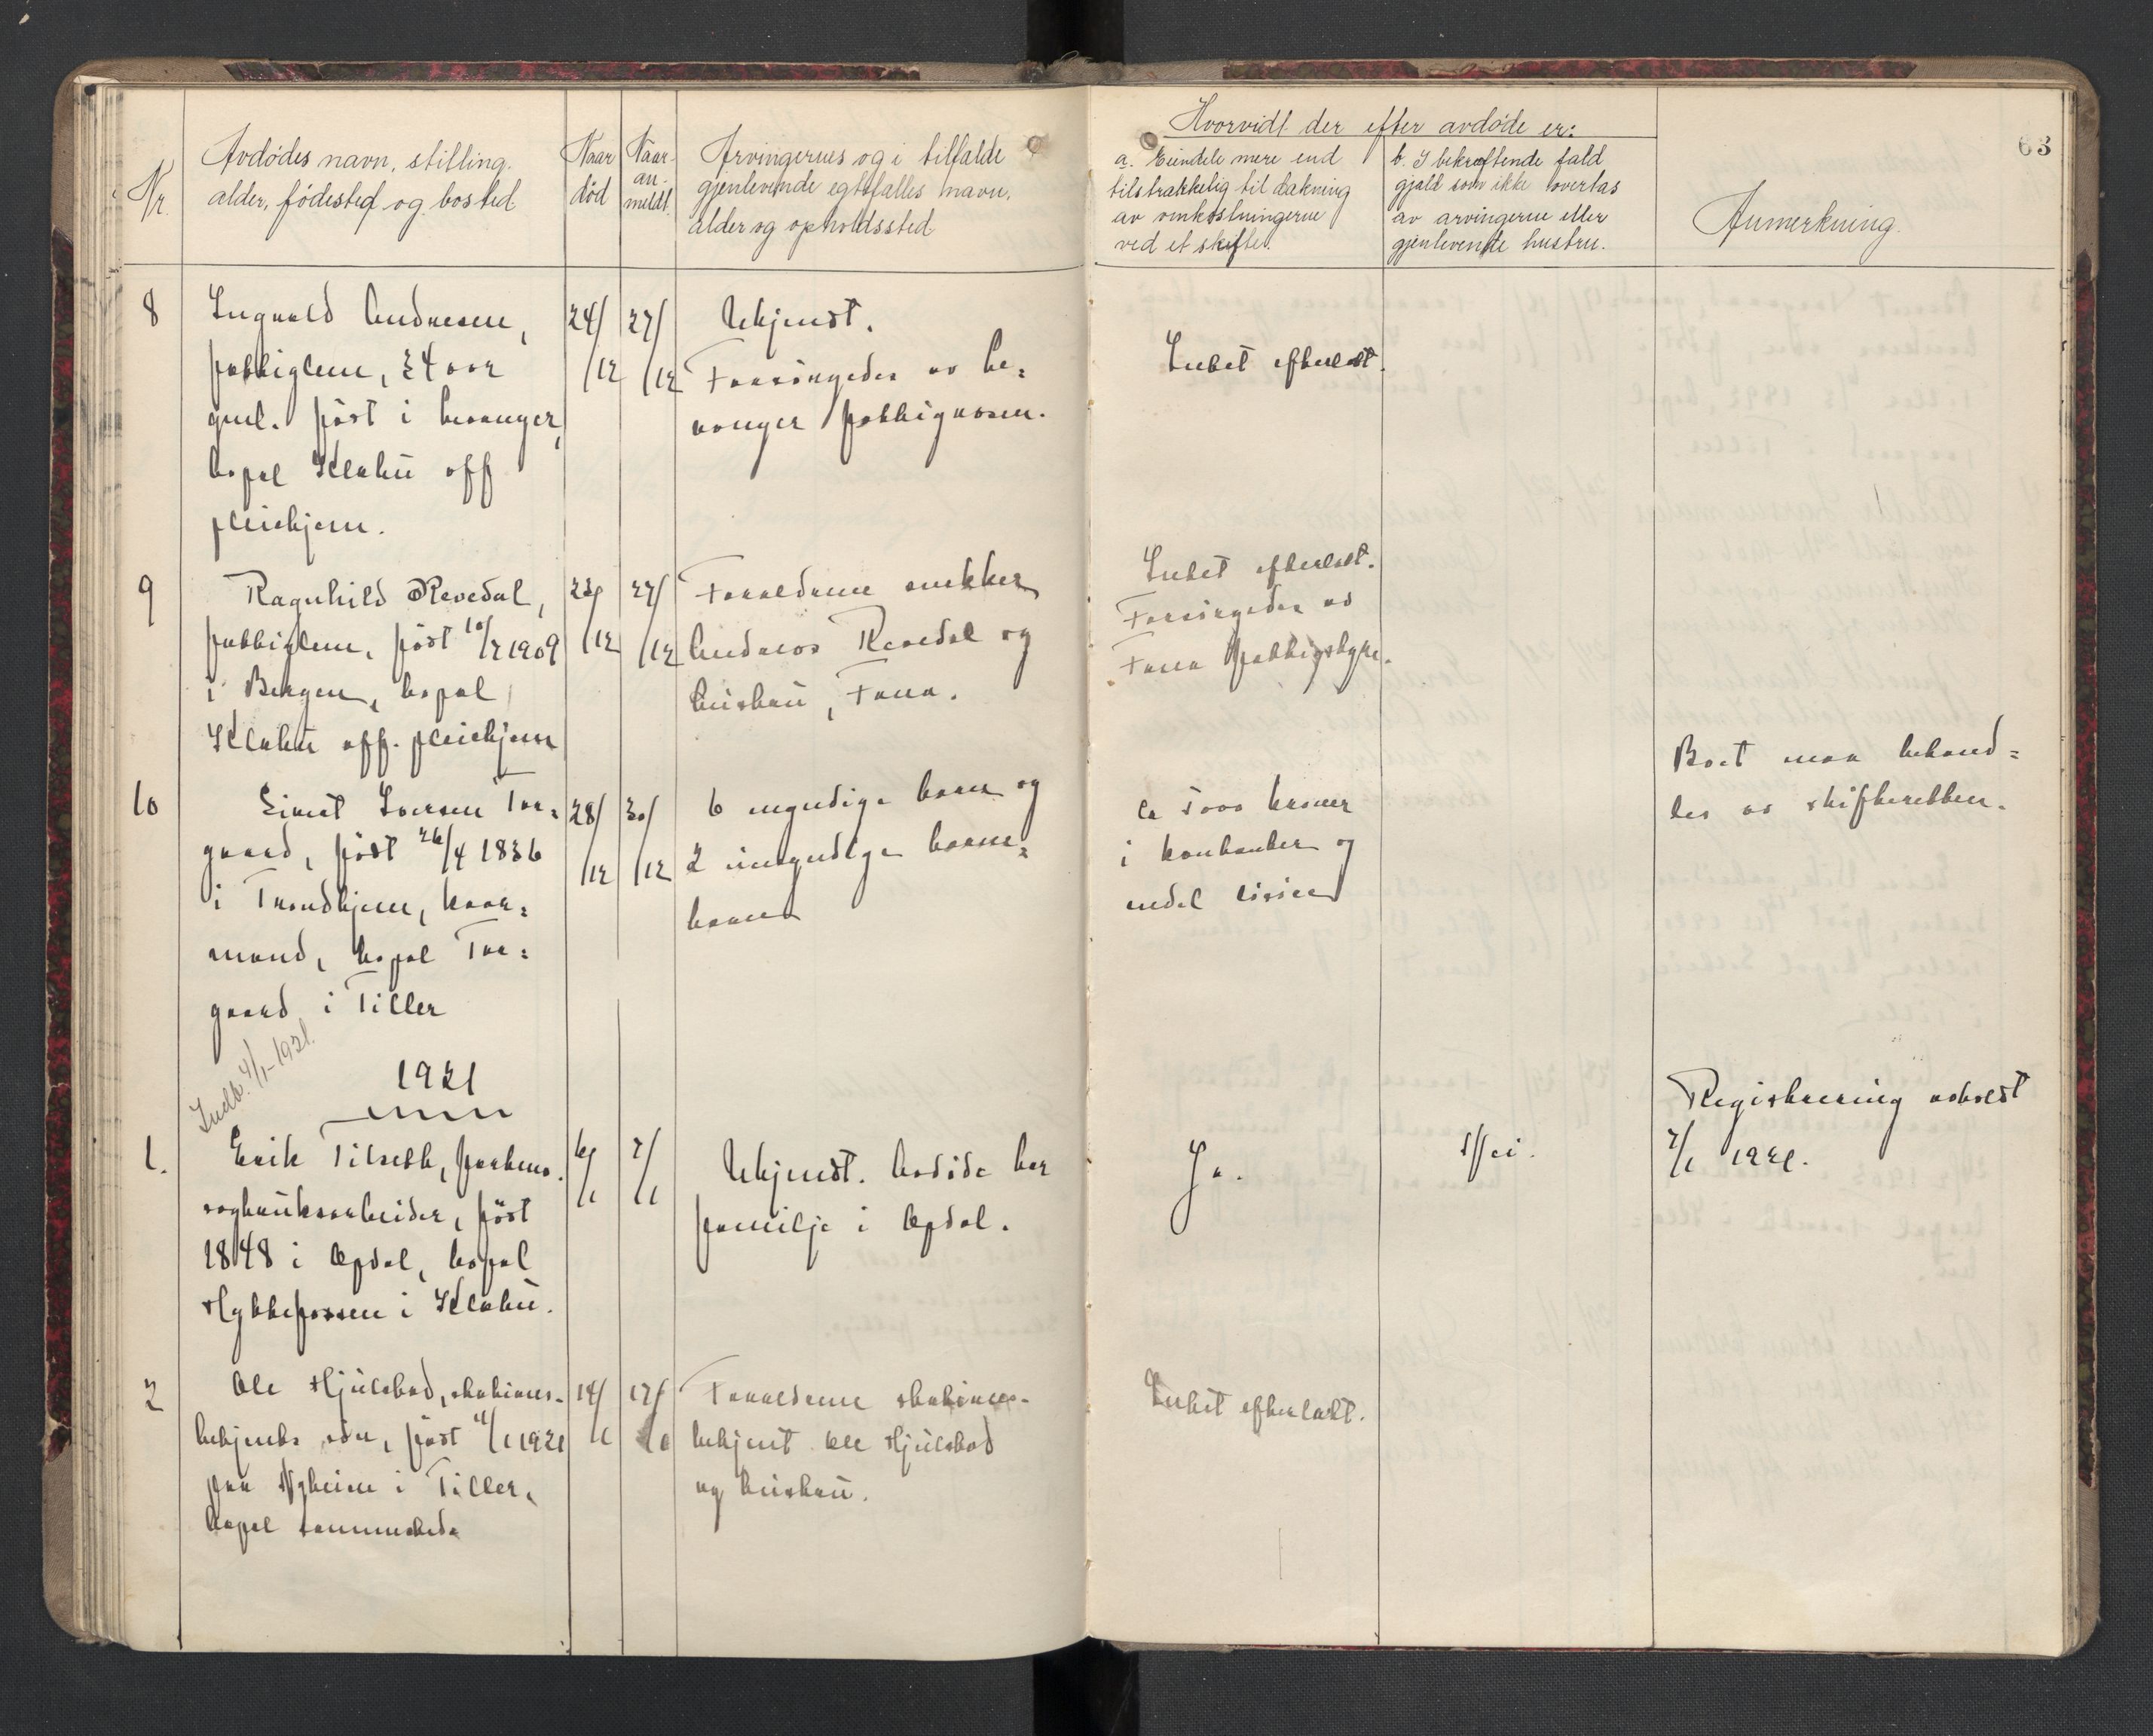 63
Nr.
Avdødes navn, stilling.
alder, fødested og bosted
Naar
død
Naar
an-
meldt.
Arvingernes og i tilfælde
gjenlevende egtefælles navn,
alder og opholdssted
Hvorvidt der efter avdøde er:
a. Eiendele mere end
tilstrækkelig til dækning
av omkostningerne
ved et skifte.
b. I bekræftende fald
gjæld som ikke overtas
av arvingerne eller
gjenlevende hustru.
Anmerkning.
8
Ingvald Andresen,
fattiglem, 24 aar
gml. født i
bopæl Klæbu off
pleiehjem.
24/
/12
27/
/12
Ukjendt.
Forsörgedes av
fattigvæsen.
Intet efterlatt.
9
Ragnhild Revedal,
fattiglem, født 10/2 1909
i Bergen, bopæl
Klæbu off. pleiehjem
/12
27/
/12
Forældrene snekker
Andreas Revedal og
hustru, Fana.
Intet efterlatt.
Forsörgedes av
Fana fattigstyre.
10
Eivert Iversen Tor=
gaard, født 26/4 1836
i Trondhjem, kaar=
mand, bopæl Tor=
gaard i Tiller
28/
/12
30/
/12
6 myndige barn og
2 umyndige barne=
barn
ca 5000 kroner
i kontanter og
endel løsøre
Boet maa behand=
les av skifteretten.
Indb. 4/1-1921.
1921
1.
Erik Tilseth, forhenv.
sagbruksarbeider, født
1848 i Opdal, bopæl
Hyttefossen i Klæbu.
6/
/1
7/
/1
Ukjendt. Avdøde har
familje i Opdal.
Ja.
Nei.
Registrering avholdt
7/1 1921.
2
Ole Hjulstad, stations-
betjents søn, født 11/1 1921
paa Nyheim i Tiller,
bopæl sammesteds
14/
/1
17/
/1
Forældrene stations-
betjent Ole Hjulstad
og hustru.
Intet efterlatt.